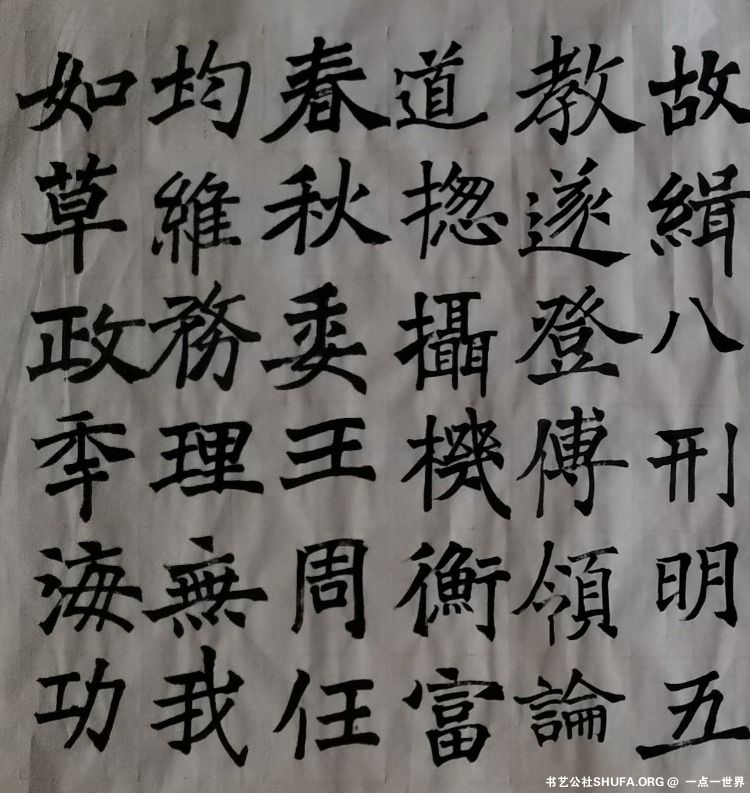 故緝八刑明五
教遂登傅領論
道揔攝機衡富
春秋委王周任
均維務理無我
如草政季海功
书艺公社SHUFA.ORG @ 一点一世界